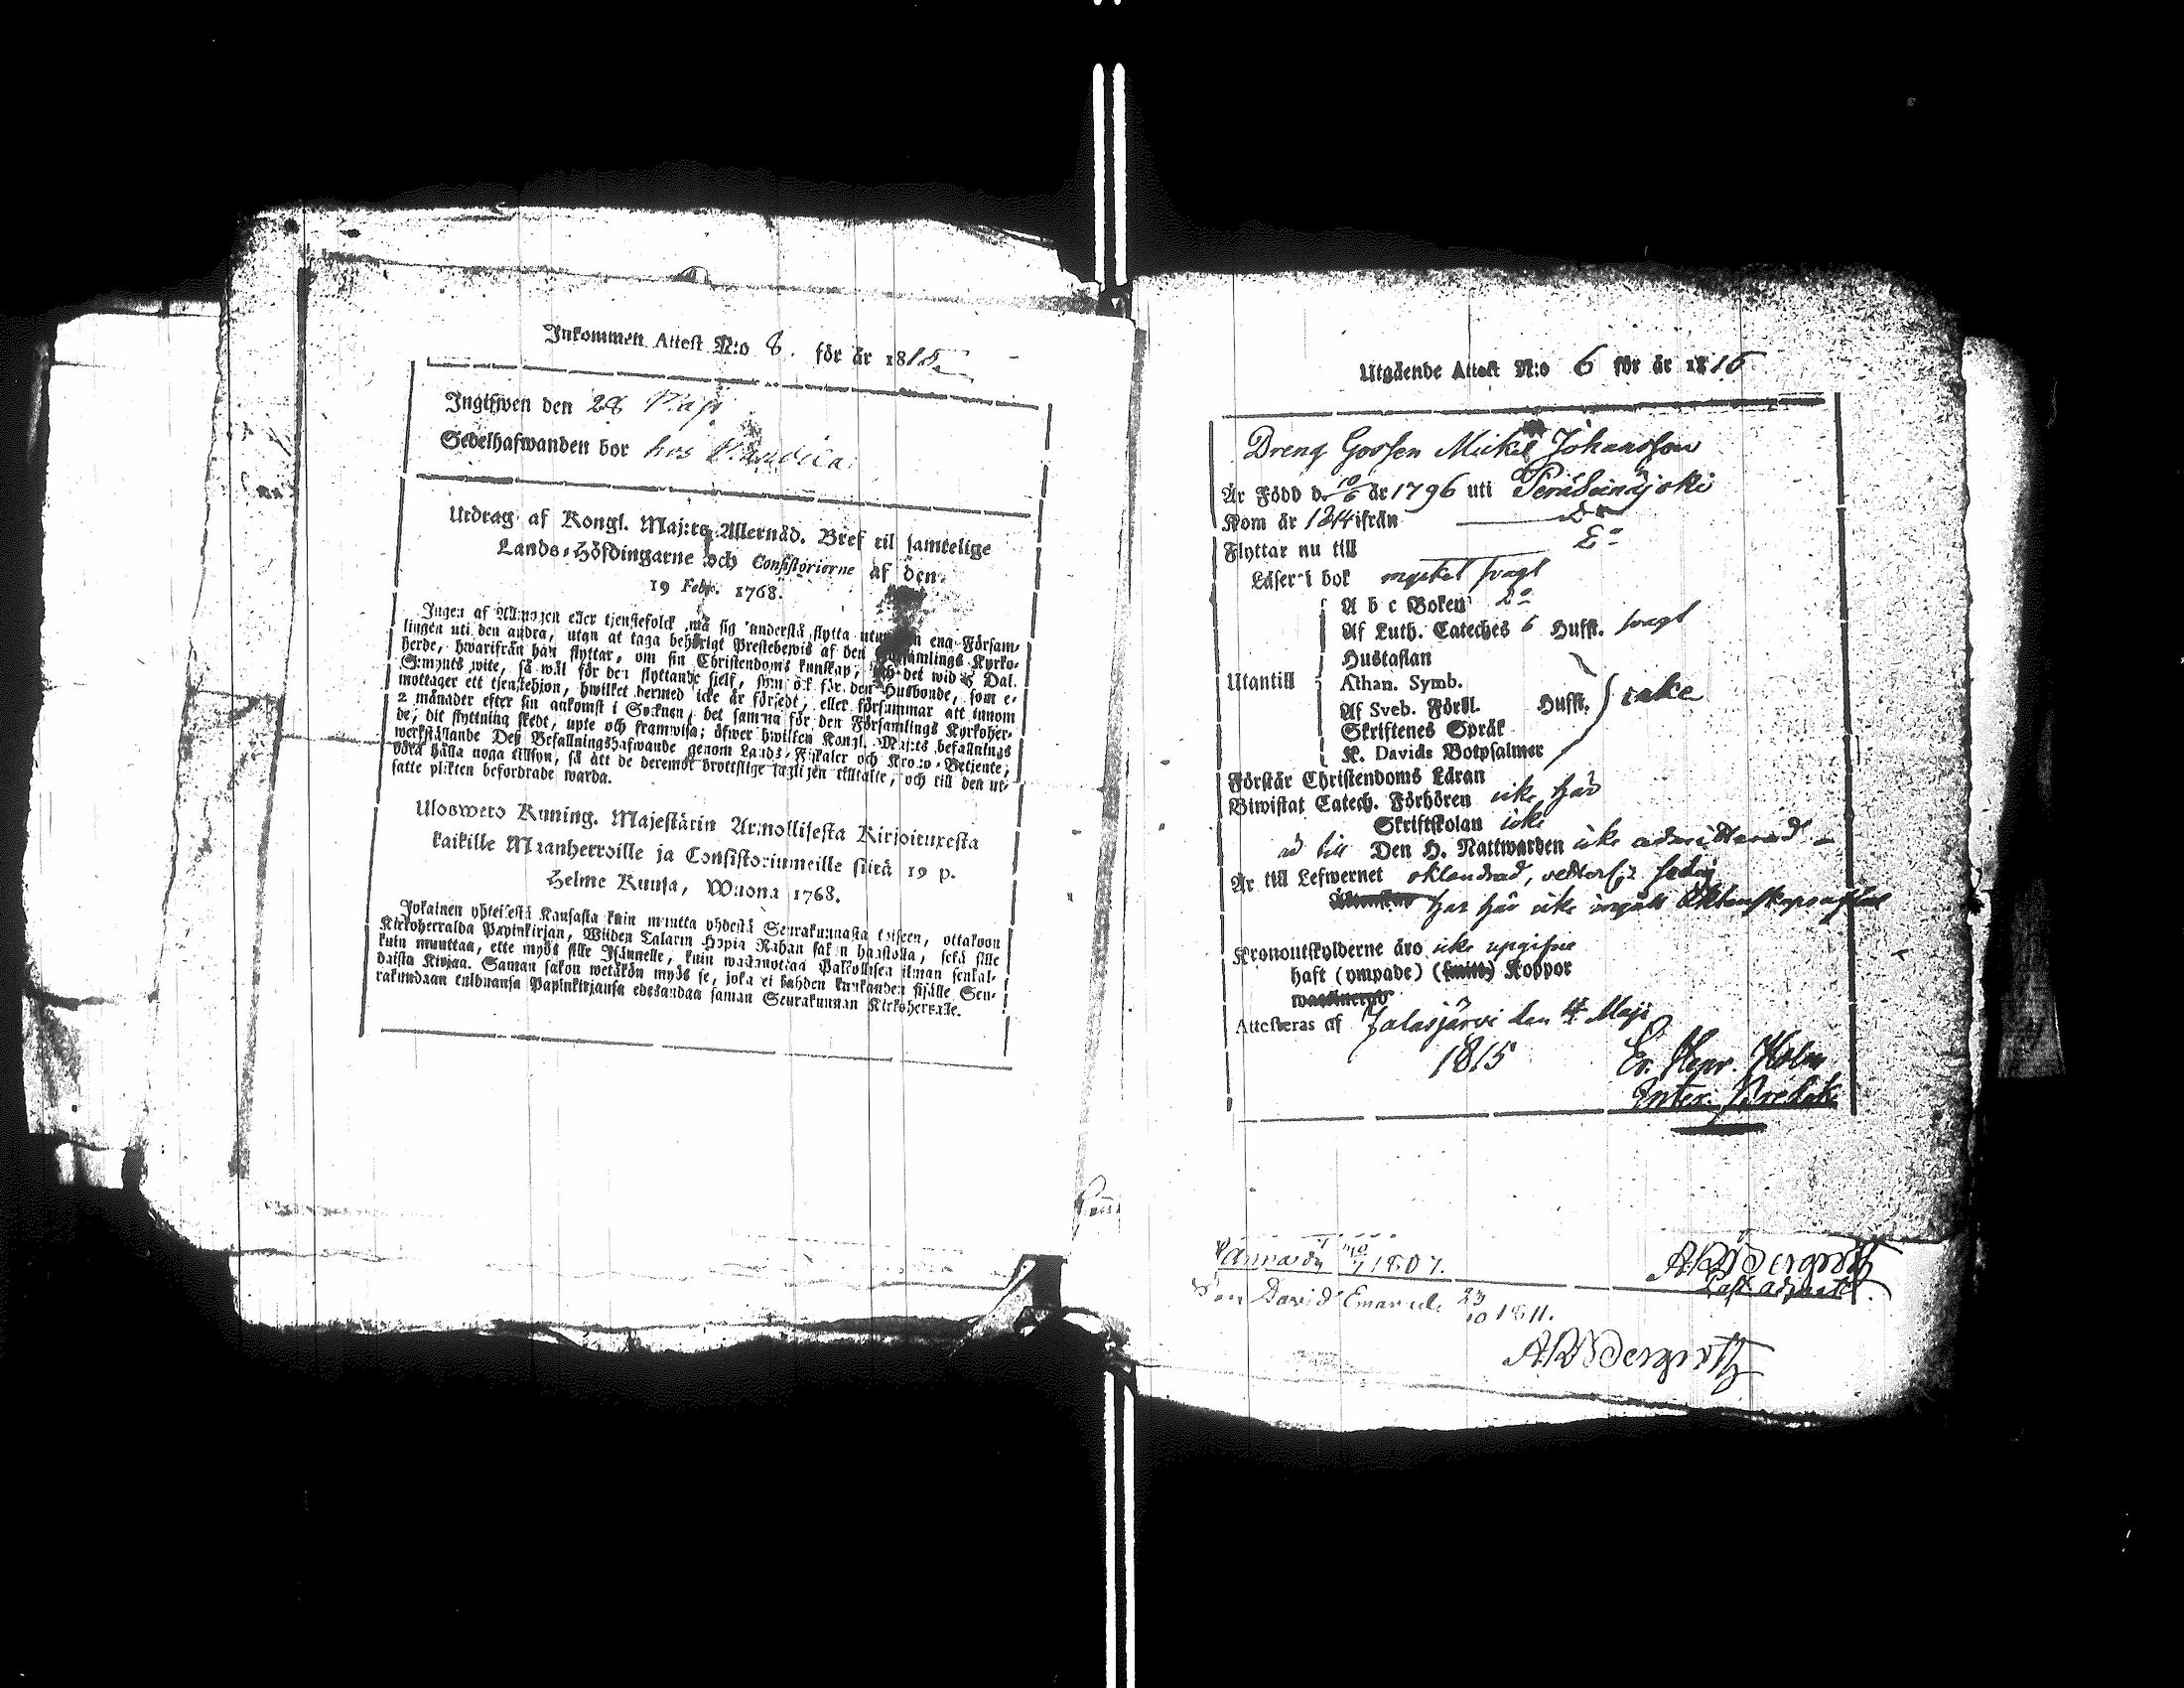 Inkommen Attest N:o 8. för år 1815
Ingifwen den 28 Maji
Sedelhafwanden bor hos
Utdrag af Kongl. Maj:ts Allernåd. Bref til samtelige
Lands-Höfdingarne och Consistorierne af den
19 Febr. 1768.
Ingen af Allmogen eller tjenstefolck må sig understå flytta utur en ena Försam-
lingen uti den andra, utan at taga behörigt Prestebewis af den Församlings Kyrko-
herde, hwarifrån han flyttar, om sin Christendoms kunskap; och det wid 5 Dal.
S:mynts wite, så wäl för den flyttande sielf, som ock för den Husbonde, som e-
mottager ett tjenstehjon, hwilket dermed icke är försedt, eller försummar att innom
2 månader efter sin ankomst i Socknen, det samma för den Församlings Kyrkoher-
de, dit flyttning skedt, upte och framwisa; öfwer hwilken Kongl. Maj:ts befallnings
werkställande Deß Befallningshafwande genom Lands-Fiskaler och Krono-Betjente,
böra hålla noga tillsyn, så att de deremot brottslige lagligen tilltalte, och till den ut-
satte plikten befordrade warda.
Ulosweto Kuning. Majestätin Armollisesta Kirjoituxesta
kaikille Maanherroille ja Consistoriumeille siitä 19 p.
Helme Kuusa, Wuona 1768.
Jokainen yhteisestä Kansasta kuin muutta yhdestä Seurakunnasta toiseen, ottakoon
Kirkoherralda Papinkirjan, Wiiden Talarin Hopia Rahan sakon haastolla, sekä sille
kuin muuttaa, ette myös sille Isännelle, kuin wastanottaa Palkollisen ilman senkal-
daista Kirjaa. Saman sakon wetäkön myös se, joka ei kahden kuukauden sisälle Seu-
rakundaan tulduansa Papinkirjansa edesandaa saman Seurakunnan Kirkoherralle.
Utgående Attest N:o 6 för år 1816
Dreng Gossen Mickel Johansson
Är Född d. 10/6 år 1796 uti Peräseinäjoki
Kom år 1814 ifrån
Flyttar nu till
Läser i bok mycket svagt
A b c Boken
Af Luth. Cateches 6 Hufst. svagt
Hustaflan
Utantill Athan. Symb.
Af Sveb. Förkl. Hufst. icke
Skriftenes Språk
K. Davids Botpsalmer
Förstår Christendoms Läran
Biwistat Catech. Förhören icke här
Skriftskolan icke
ad till Den H. Nattwarden icke admitterad
Är till Lefwernet oklandrad, ledig
har här icke ingått Äktenskapsaftal
Kronoutskylderne äro icke upgifne
haft (ympade) Koppor
Attesteras af Jalasjärvi den 4 Maji
1815 Er. Henr. Holm
1807.
Son David Emanuel 23/10 1811.